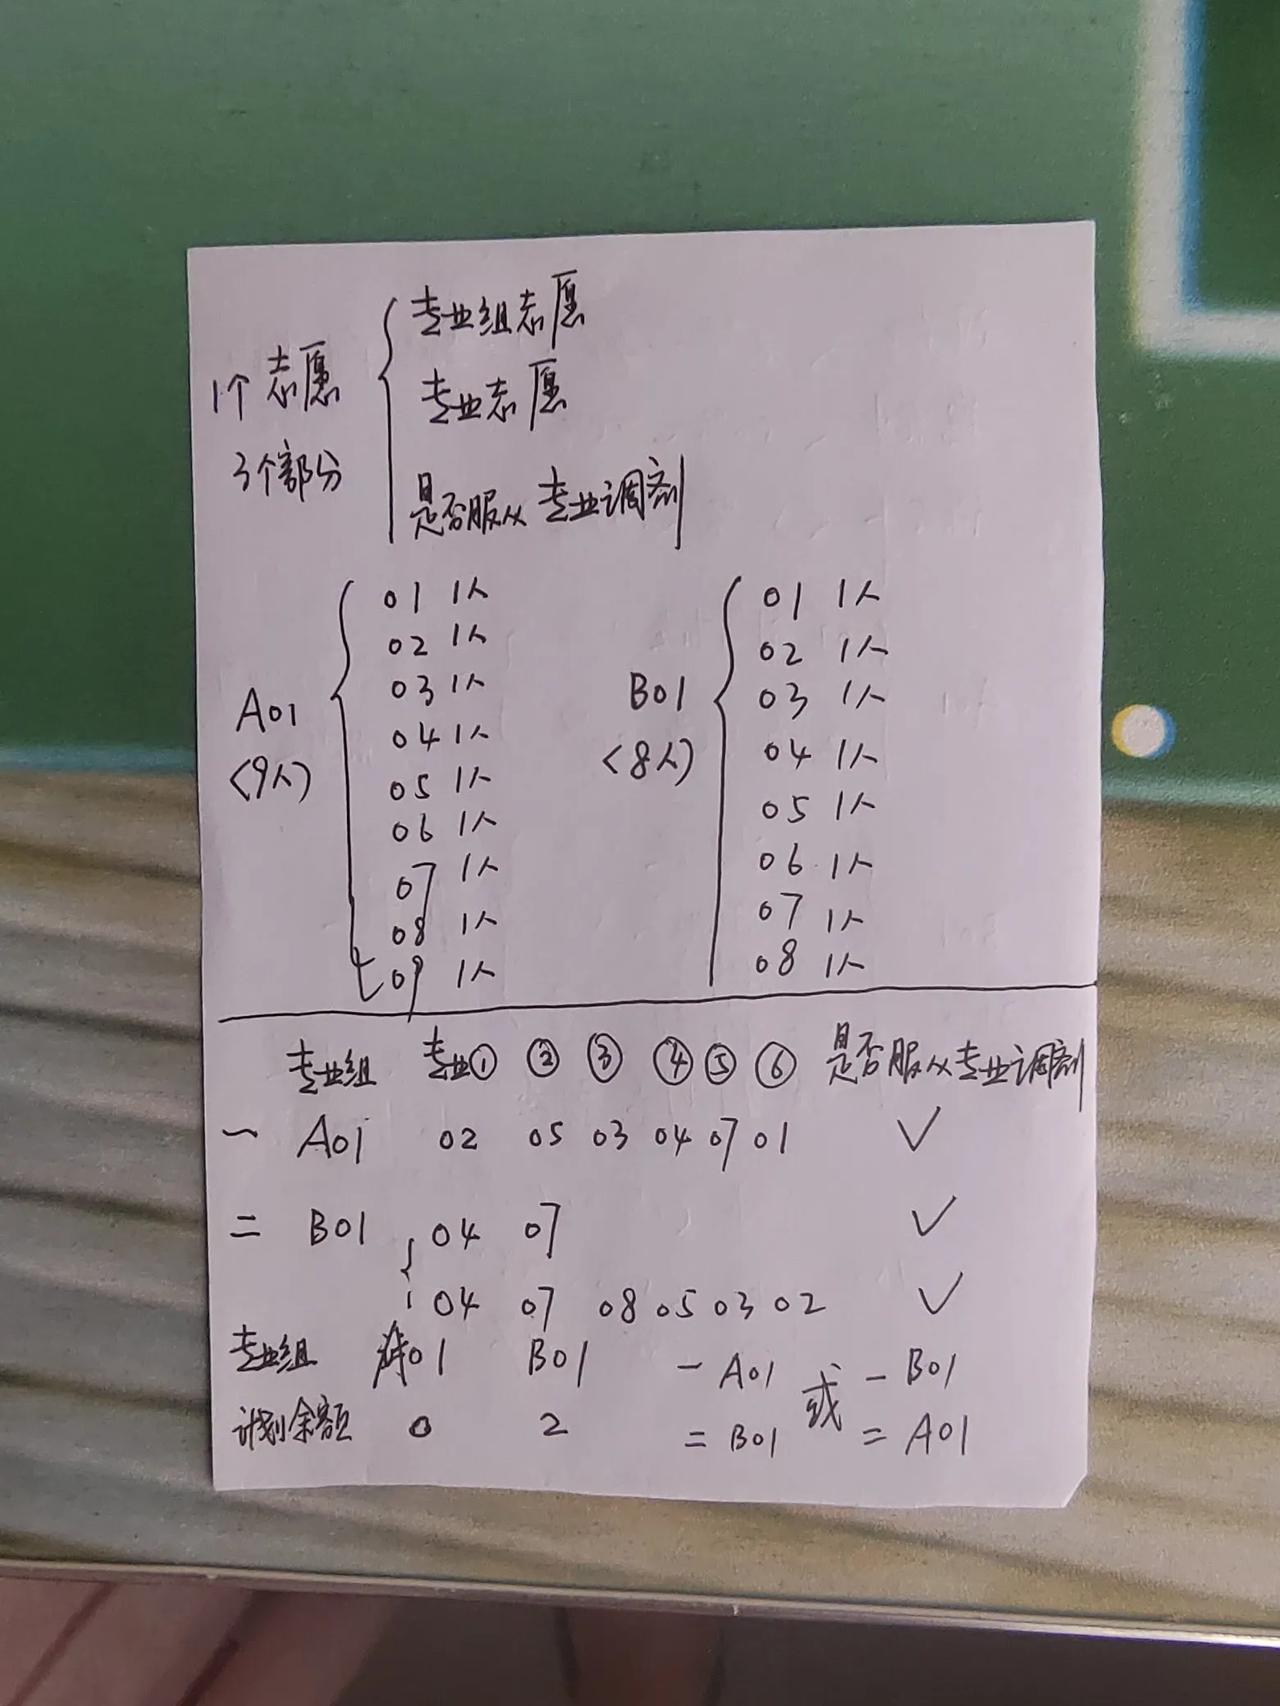 专业组志愿
1个志愿
专业志愿
3个部分
是否服从专业调剂
A01
(9人)
01 1人
02 1人
03 1人
04 1人
05 1人
06 1人
07 1人
08 1人
09 1人
B01
(8人)
01 1人
02 1人
03 1人
04 1人
05 1人
06 1人
07 1人
08 1人
专业组 专业① ② ③ ④ ⑤ ⑥ 是否服从专业调剂
一 A01 02 05 03 04 07 01 ✓
二 B01 04 07 ✓
04 07 08 05 03 02 ✓
专业组 A01 B01 一 A01 或 一 B01
计划余额 0 2 二 B01 二 A01